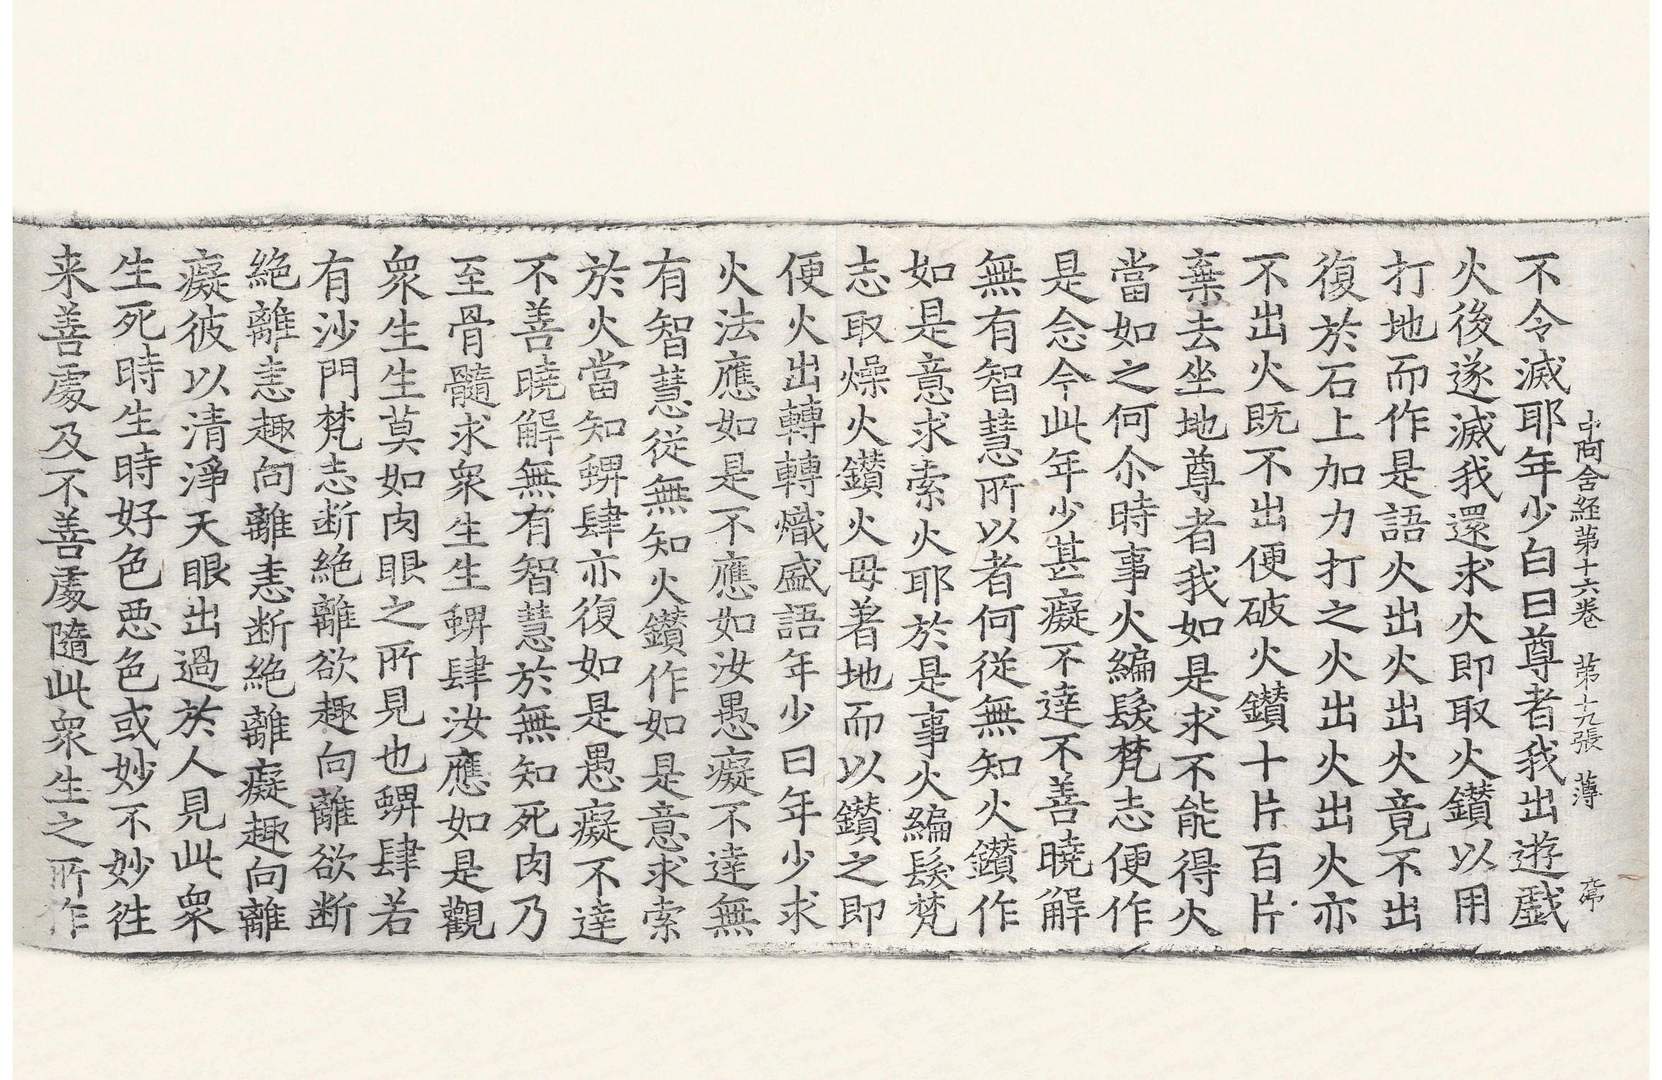 中阿含経第十六巻 第十九張 薄
不令滅耶年少白曰尊者我出遊戲
火後遂滅我還求火即取火鑽以用
打地而作是語火出火出火竟不出
復於石上加力打之火出火出火亦
不出火既不出便破火鑽十片百片
棄去坐地尊者我如是求不能得火
當如之何尒時事火編髮梵志便作
是念今此年少甚癡不達不善曉解
無有智慧所以者何従無知火鑽作
如是意求索火耶於是事火編髮梵
志取燥火鑽火母著地而以鑽之即
便火出轉轉熾盛語年少曰年少求
火法應如是不應如汝愚癡不達無
有智慧従無知火鑽作如是意求索
於火當知蜱肆亦復如是愚癡不達
不善曉解無有智慧於無知死肉乃
至骨髓求衆生生蜱肆汝應如是觀
衆生生莫如肉眼之所見也蜱肆若
有沙門梵志断絶離欲趣向離欲断
絶離恚趣向離恚断絶離癡趣向離
癡彼以清淨天眼出過於人見此衆
生死時生時好色悪色或妙不妙徃
来善處及不善處隨此衆生之所作